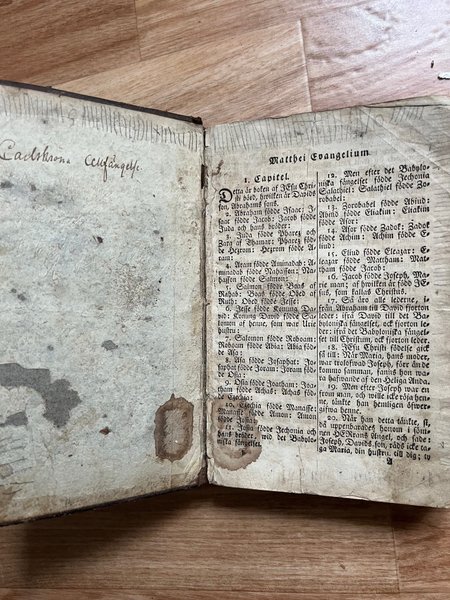 Cellfängelse
Matthei Evangelium
1. Capitel.
Detta är boken af JEsu Chri-
sti börd, hwilken är Davids
son, Abrahams sons.
2. Abraham födde Isaac: I-
saac födde Jacob: Jacob födde
Juda och hans bröder:
3. Juda födde Pharez och
Zara af Thamar: Pharez föd-
de Hezrom: Hezrom födde A-
ram:
4. Aram födde Aminadab: A-
minadab födde Nahasson: Na-
hasson födde Salmon:
5. Salmon födde Boas af
Rahab: Boas födde Obed af
Ruth: Obed födde Jesse:
6. Jesse födde Konung Da-
vid: Konung David födde Sa-
lomon af henne, som war Urie
hustru:
7. Salomon födde Roboam:
Roboam födde Abia: Abia föd-
de Asa:
8. Asa födde Josaphat: Jo-
saphat födde Joram: Joram föd-
de Osia:
9. Osia födde Joatham: Joa-
tham födde Achas: Achas föd-
de Ezechia:
10. Ezechia födde Manasse:
Manasse födde Amon: Amon
födde Josia:
11. Josia födde Jechonia och
hans bröder, wid det Babylo-
niska fängelset.
12. Men efter det Babylo-
niska fängelset födde Jechonia
Salathiel: Salathiel födde Zo-
robabel:
13. Zorobabel födde Abiud:
Abiud födde Eliakim: Eliakim
födde Asor:
14. Asor födde Zadok: Zadok
födde Achim: Achim födde E-
liud:
15. Eliud födde Eleazar: E-
leazar födde Matthan: Mat-
than födde Jacob:
16. Jacob födde Joseph, Ma-
rie man; af hwilken är född JE-
sus, som kallas Christus.
17. Så äro alle lederne, i-
från Abraham till David fjorton
leder: ifrå David till det Ba-
byloniska fängelset, ock fjorton le-
der: ifrå det Babyloniska fängel-
set till Christum, ock fjorton leder.
18. JEsu Christi födelse gick
så till: När Maria, hans moder,
war trolofwad Joseph, förr än de
komma samman, fanns hon wa-
ra hafwande af den Heliga Anda.
19. Men efter Joseph war en
from man, och wille icke röja hen-
ne, tänkte han hemligen öfwer-
gifwa henne.
20. När han detta tänkte, si,
då uppenbarades honom i söm-
nen HERrans Ängel, och sade:
Joseph, Davids son, räds icke ta-
ga Maria, din hustru, till dig; ty
A